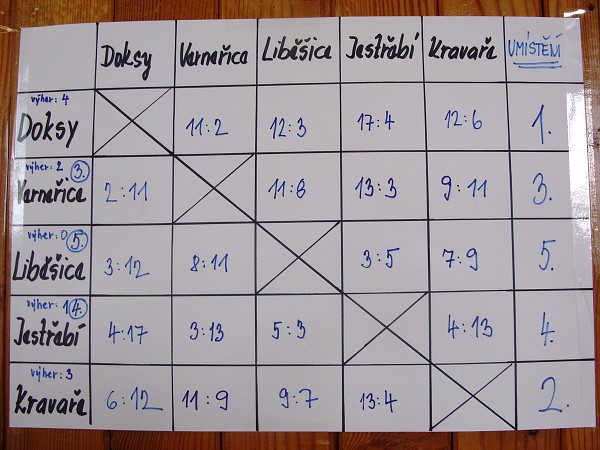 Doksy Varnařica Liběšica Jestřabí Kravaře UMÍSTĚNÍ
výher: 4
Doksy 11:2 12:3 17:4 12:6 1.
výher: 2 3.
Varnařica 2:11 11:8 13:3 9:11 3.
výher: 0 5.
Liběšica 3:12 8:11 3:5 7:9 5.
výher: 1 4.
Jestřabí 4:17 3:13 5:3 4:13 4.
výher: 3
Kravaře 6:12 11:9 9:7 13:4 2.